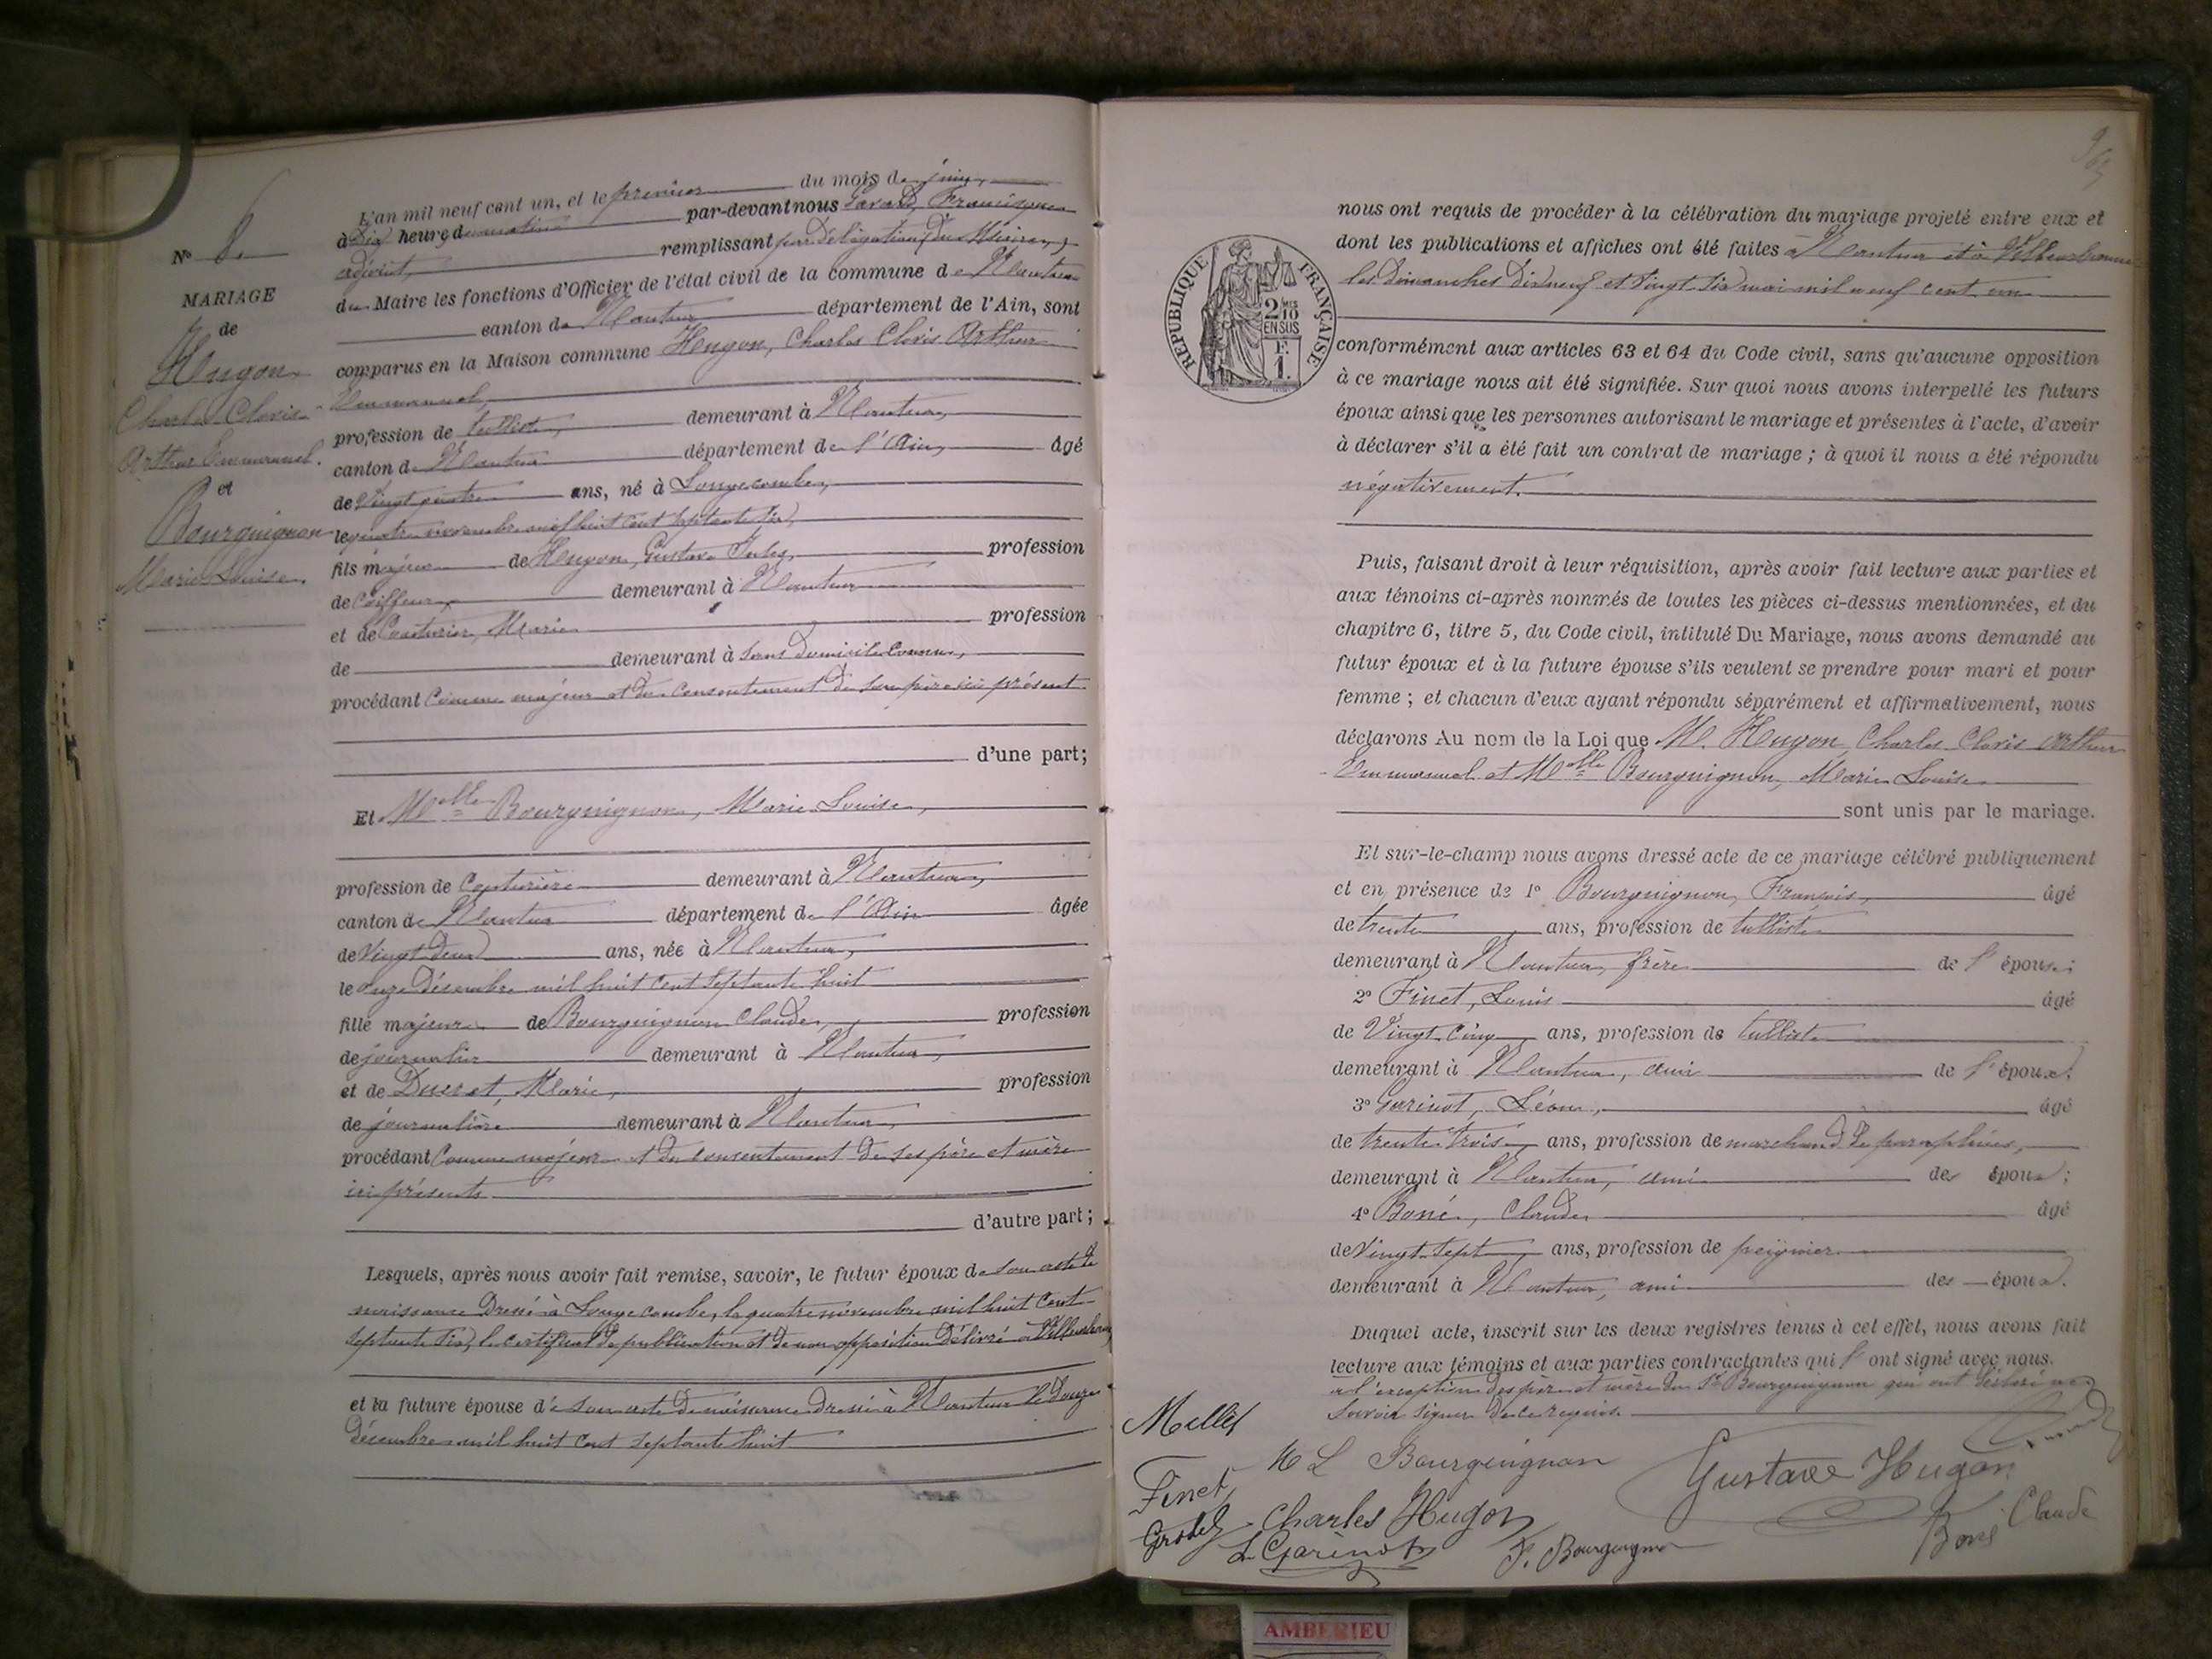 Nº 8.
MARIAGE
de
Hugon
Charles Clovis
Arthur Emmanuel.
et
Bourguignon
Marie Louise.
L'an mil neuf cent un, et le premier du mois de juin,
à dix heures du matin par-devant nous Savard, Francisque
adjoint, remplissant par délégation du Maire,
du Maire les fonctions d'Officier de l'état civil de la commune de Nantua
canton de Nantua département de l'Ain, sont
comparus en la Maison commune Hugon, Charles Clovis Arthur
Emmanuel,
profession de tulliste, demeurant à Nantua,
canton de Nantua département de l'Ain, âgé
de vingt quatre ans, né à Longecombe,
le quatre novembre mil huit cent septante six,
fils majeur de Hugon, Gustave Jules, profession
de coiffeur, demeurant à Nantua
et de Couturier, Marie profession
de demeurant à sans domicile connu,
procédant comme majeur et du consentement de son père ici présent
d'une part;
Et Melle Bourguignon, Marie Louise,
profession de Couturière demeurant à Nantua,
canton de Nantua département de l'Ain âgée
de vingt deux ans, née à Nantua,
le onze décembre mil huit cent septante huit
fille majeure de Bourguignon Claude, profession
de journalier demeurant à Nantua,
et de Ducret, Marie, profession
de journalière demeurant à Nantua,
procédant comme majeure et du consentement de ses père et mère
ici présents
d'autre part;
Lesquels, après nous avoir fait remise, savoir, le futur époux de son acte de
naissance dressé à Longecombe, le quatre novembre mil huit cent
septante six, le certificat de publication et de non opposition délivré à Villeurbanne
et la future épouse de son acte de naissance dressé à Nantua le douze
décembre mil huit cent septante huit
nous ont requis de procéder à la célébration du mariage projeté entre eux et
dont les publications et affiches ont été faites à Nantua et à Villeurbanne
les dimanches dix neuf et vingt six mai mil neuf cent un
RÉPUBLIQUE FRANÇAISE
2 MES
10
EN SUS
F.
1.
conformément aux articles 63 et 64 du Code civil, sans qu'aucune opposition
à ce mariage nous ait été signifiée. Sur quoi nous avons interpellé les futurs
époux ainsi que les personnes autorisant le mariage et présentes à l'acte, d'avoir
à déclarer s'il a été fait un contrat de mariage ; à quoi il nous a été répondu
négativement.
Puis, faisant droit à leur réquisition, après avoir fait lecture aux parties et
aux témoins ci-après nommés de toutes les pièces ci-dessus mentionnées, et du
chapitre 6, titre 5, du Code civil, intitulé Du Mariage, nous avons demandé au
futur époux et à la future épouse s'ils veulent se prendre pour mari et pour
femme ; et chacun d'eux ayant répondu séparément et affirmativement, nous
déclarons Au nom de la Loi que M. Hugon, Charles Clovis Arthur
Emmanuel et Melle Bourguignon, Marie Louise
sont unis par le mariage.
Et sur-le-champ nous avons dressé acte de ce mariage célébré publiquement
et en présence de 1º Bourguignon, François, âgé
de trente ans, profession de tulliste
demeurant à Nantua, frère de l'épouse;
2º Finet, Louis âgé
de vingt cinq ans, profession de tulliste
demeurant à Nantua, ami de l'époux;
3º Garinot, Léon, âgé
de trente trois ans, profession de marchand de parapluies,
demeurant à Nantua, ami des époux;
4º Boné, Claude âgé
de vingt sept ans, profession de peignier
demeurant à Nantua, ami des époux.
Duquel acte, inscrit sur les deux registres tenus à cet effet, nous avons fait
lecture aux témoins et aux parties contractantes qui l'ont signé avec nous.
à l'exception des père et mère de Bourguignon qui ont déclaré ne
savoir signer de ce requis.
Millet
M L Bourguignon
Gustave Hugon
Finet
Charles Hugon
L. Garinot
F. Bourguignon
Boné Claude
AMBERIEU